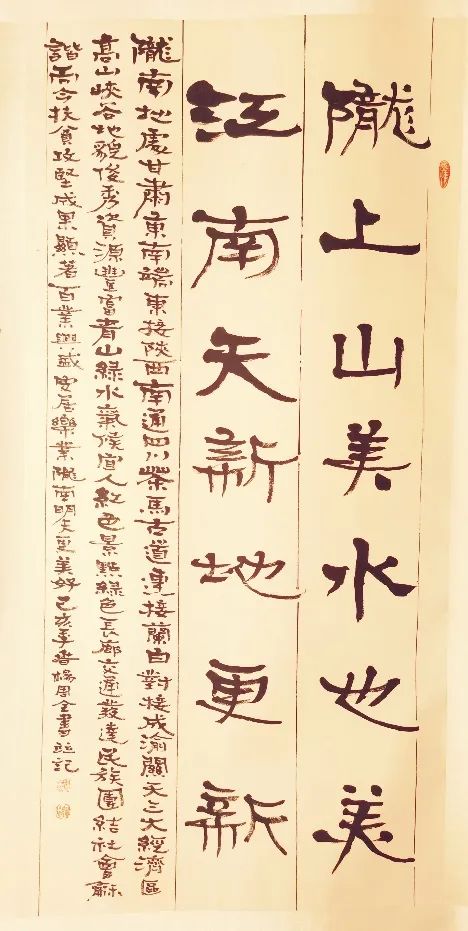 隴上山美水也美
江南天新地更新
隴南地處甘肅東南端東接陝西南通四川茶馬古道連接蘭白對接成渝關天三大經濟區
高山峽谷地貌俊秀資源豐富青山綠水氣候宜人紅色景點綠色長廊交通發達民族團結社會龢
諧而今扶貧攻堅成果顯著百業興盛安居樂業隴南明天更美好己亥季春楊周全書並記